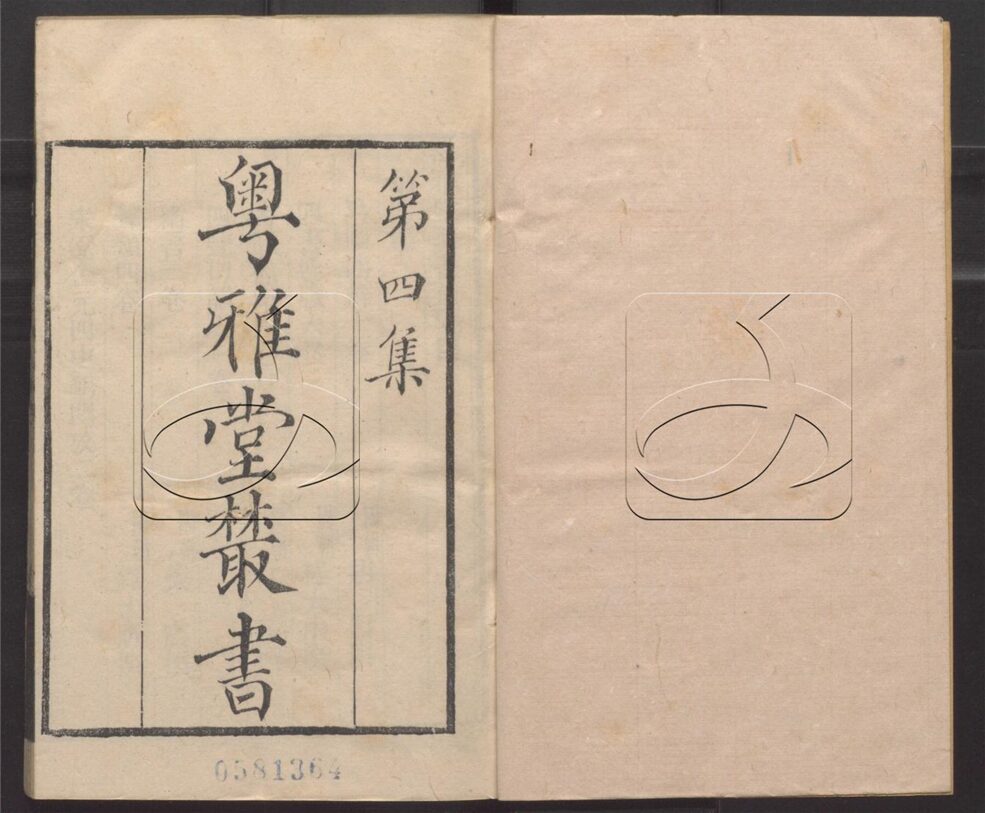 第四集
粤雅堂叢書
0581364